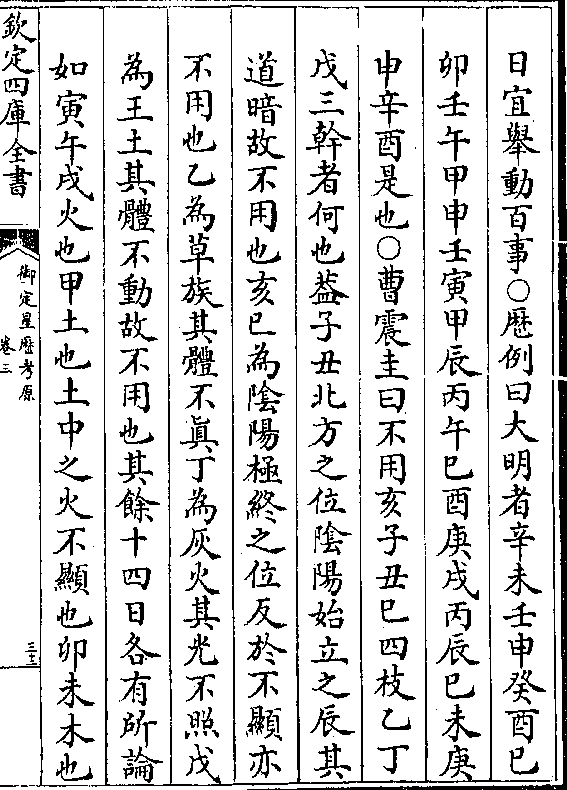 日宜舉動百事○歴例曰大明者辛未壬申癸酉巳
卯壬午甲申壬寅甲辰丙午巳酉庚戌丙辰巳未庚
申辛酉是也○曹震圭曰不用亥子丑巳四枝乙丁
戊三幹者何也葢子丑北方之位陰陽始立之辰其
道暗故不用也亥巳為陰陽極終之位反於不顯亦
不用也乙為草族其體不眞丁為灰火其光不照戊
為王土其體不動故不用也其餘十四日各有所論
如寅午戌火也甲土也土中之火不顯也卯未木也
欽定四庫全書
御定星歴考原
卷三